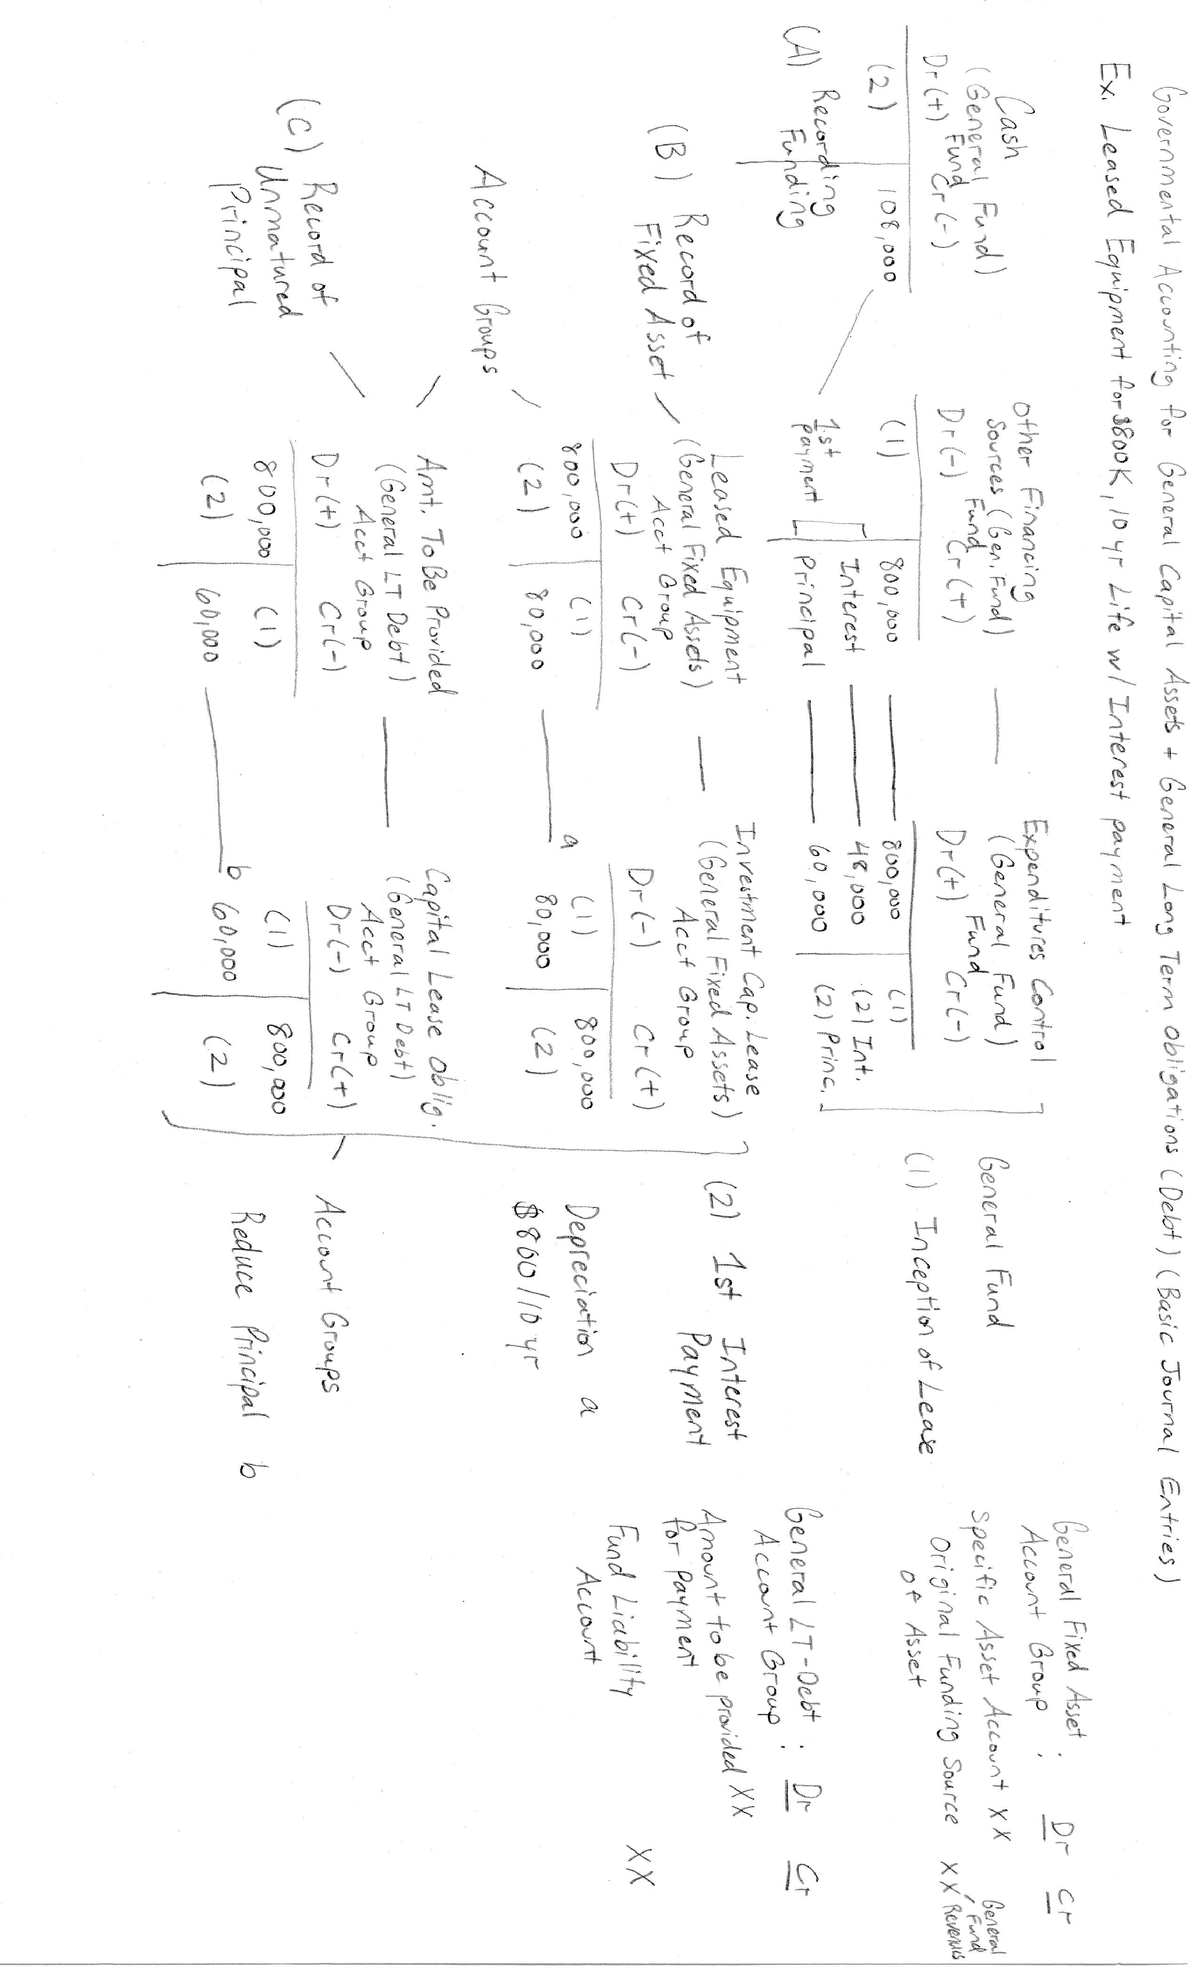 Governmental Accounting for General Capital Assets + General Long Term Obligations (Debt) (Basic Journal Entries)
Ex. Leased Equipment for $800K, 10 yr Life w/ Interest payment
Cash
(General Fund)
Fund
Dr(+) Cr(-)
(2) 108,000
(A) Recording
Funding
Other Financing
Sources (Gen. Fund)
Fund
Dr(-) Cr(+)
(1) 800,000
Interest
1st
payment
Principal
Expenditures Control
(General Fund)
Fund
Dr(+) Cr(-)
800,000 (1)
48,000 (2) Int.
60,000 (2) Princ.
General Fund
(1) Inception of Lease
General Fixed Asset
Account Group : Dr Cr
Specific Asset Account XX
Original Funding Source XX
of Asset
General
Fund
Revenues
(B) Record of
Fixed Asset
Leased Equipment
(General Fixed Assets)
Acct Group
Dr(+) Cr(-)
800,000 (1)
(2) 80,000
Investment Cap. Lease
(General Fixed Assets)
Acct Group
Dr(-) Cr(+)
(1) 800,000
a 80,000 (2)
(2) 1st Interest
Payment
Depreciation a
$800/10 yr
General LT-Debt
Account Group : Dr Cr
Amount to be provided XX
for payment
Fund Liability XX
Account
Account Groups
(C) Record of
Unmatured
Principal
Amt. To Be Provided
(General LT Debt)
Acct Group
Dr(+) Cr(-)
800,000 (1)
(2) 60,000
Capital Lease Oblig.
(General LT Debt)
Acct Group
Dr(-) Cr(+)
(1) 800,000
b 60,000 (2)
Account Groups
Reduce Principal b